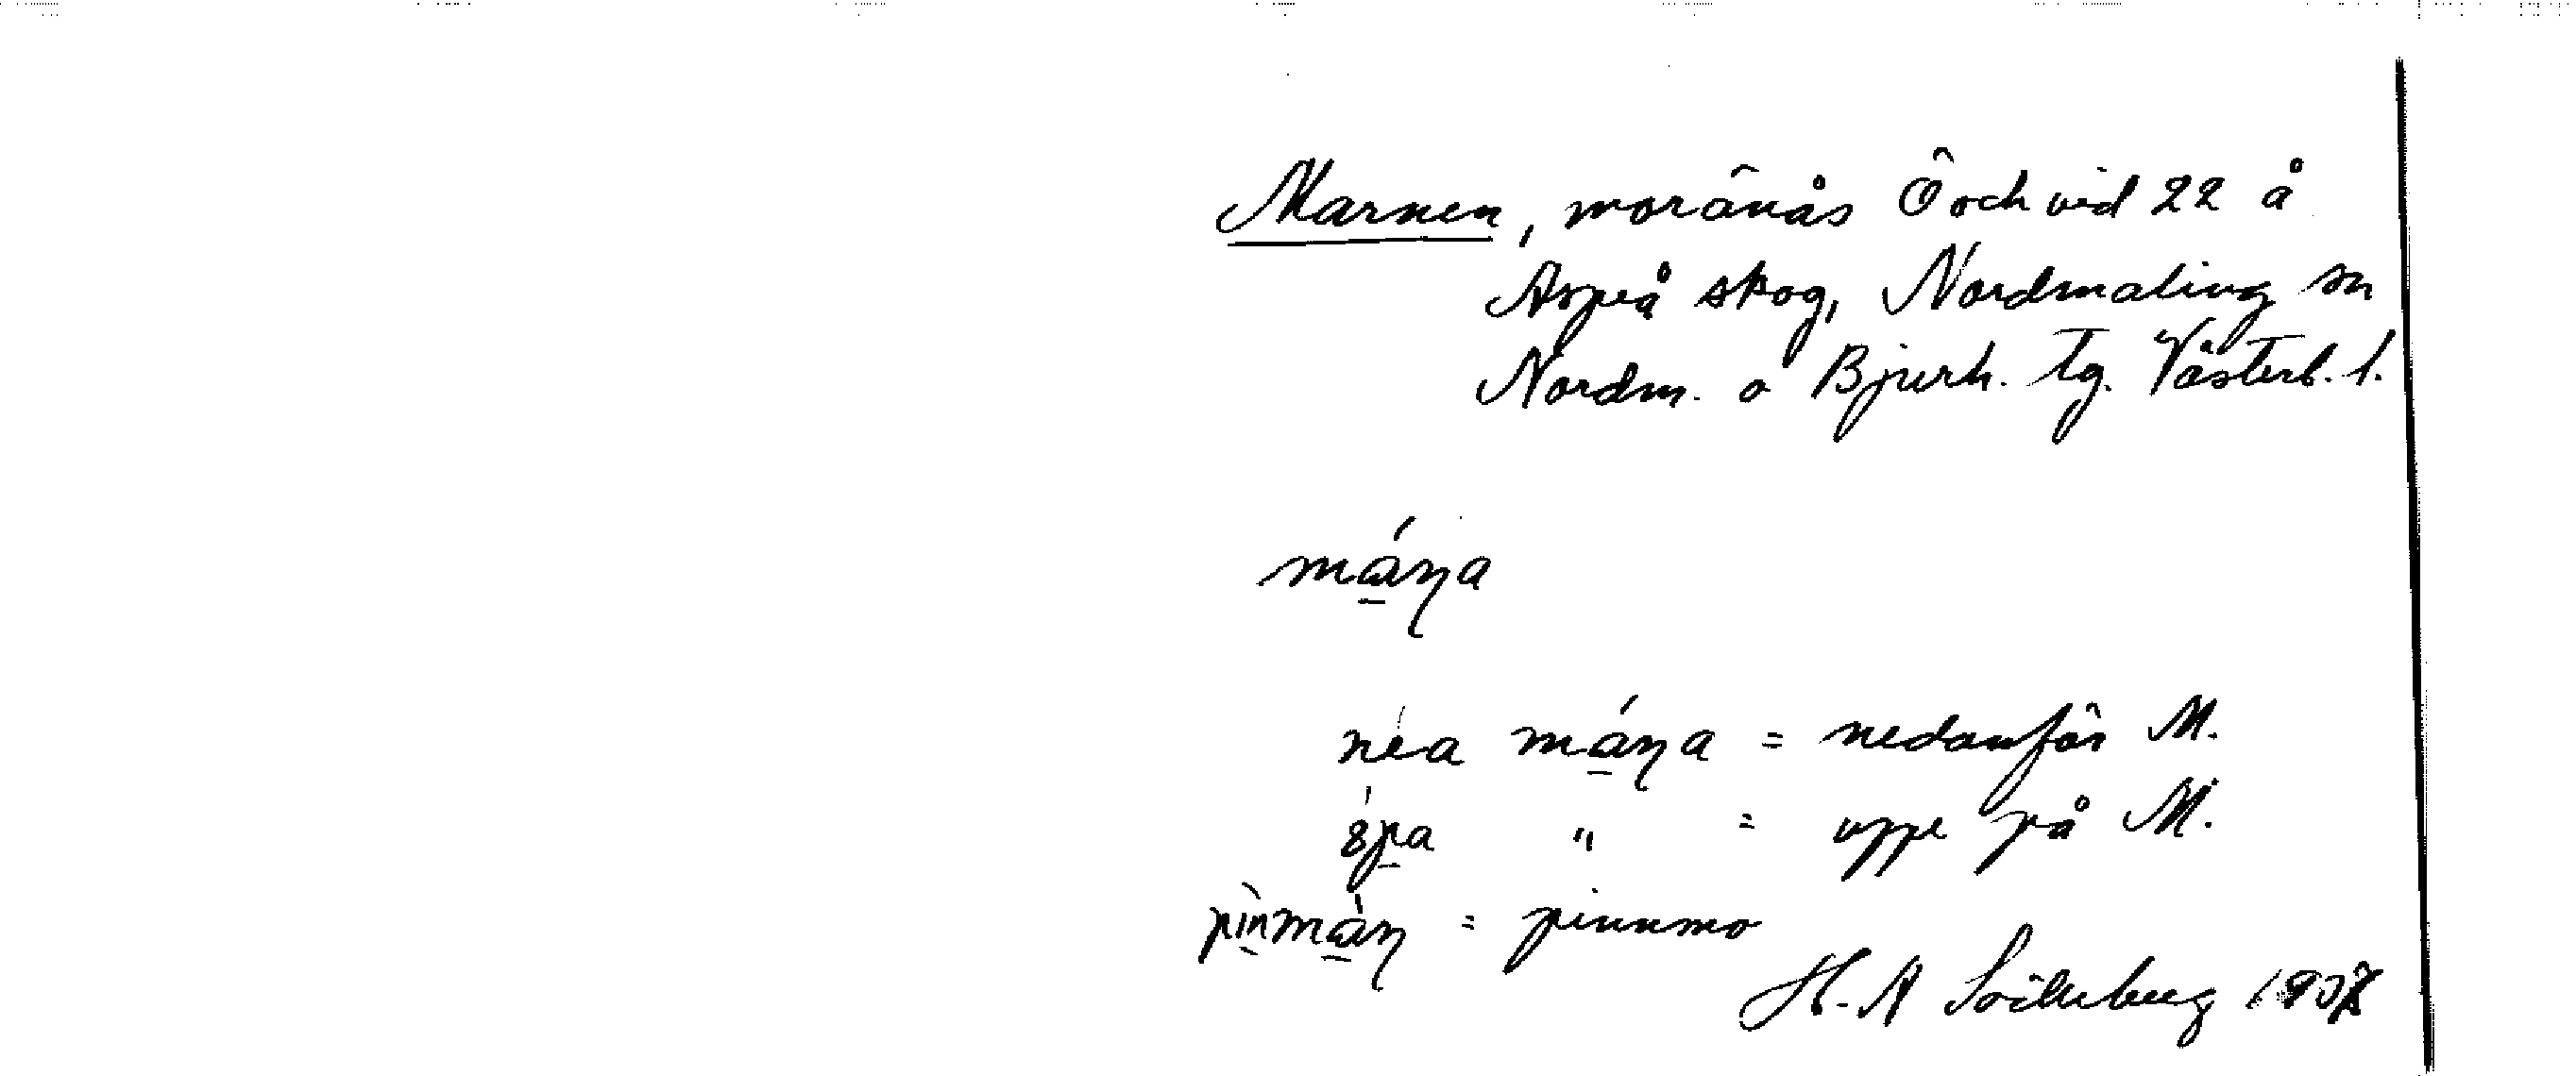 Marnen, moränås Ö och vid 22 å
Aspeå skog, Nordmaling sn
Nordm. o Bjurh. tg. Västerb. l.
má̱ɳa
néa má̱ɳa = nedanför M.
ȣ́p̱a " = uppe på M.
pìṉmà̱ɳ = pinnmo
H. A Söderberg 1937